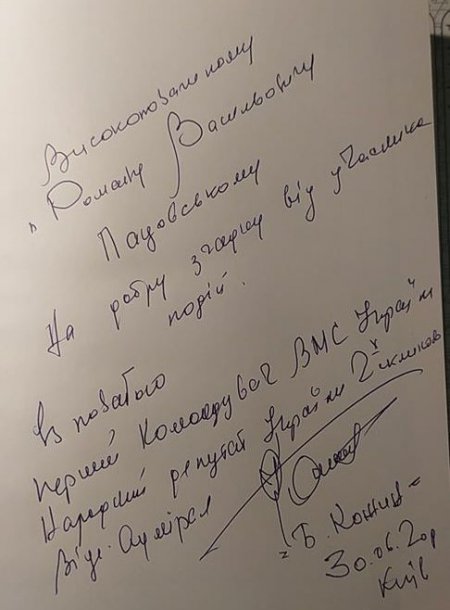 Високоповажному
п. Роману Васильовичу
Пацовському
На добру згадку від учасника
подій.
Із повагою
перший командувач ВМС України
Народний депутат України 2го скликання
Віце-адмірал
Б. Кожин
30.06.20р
Київ